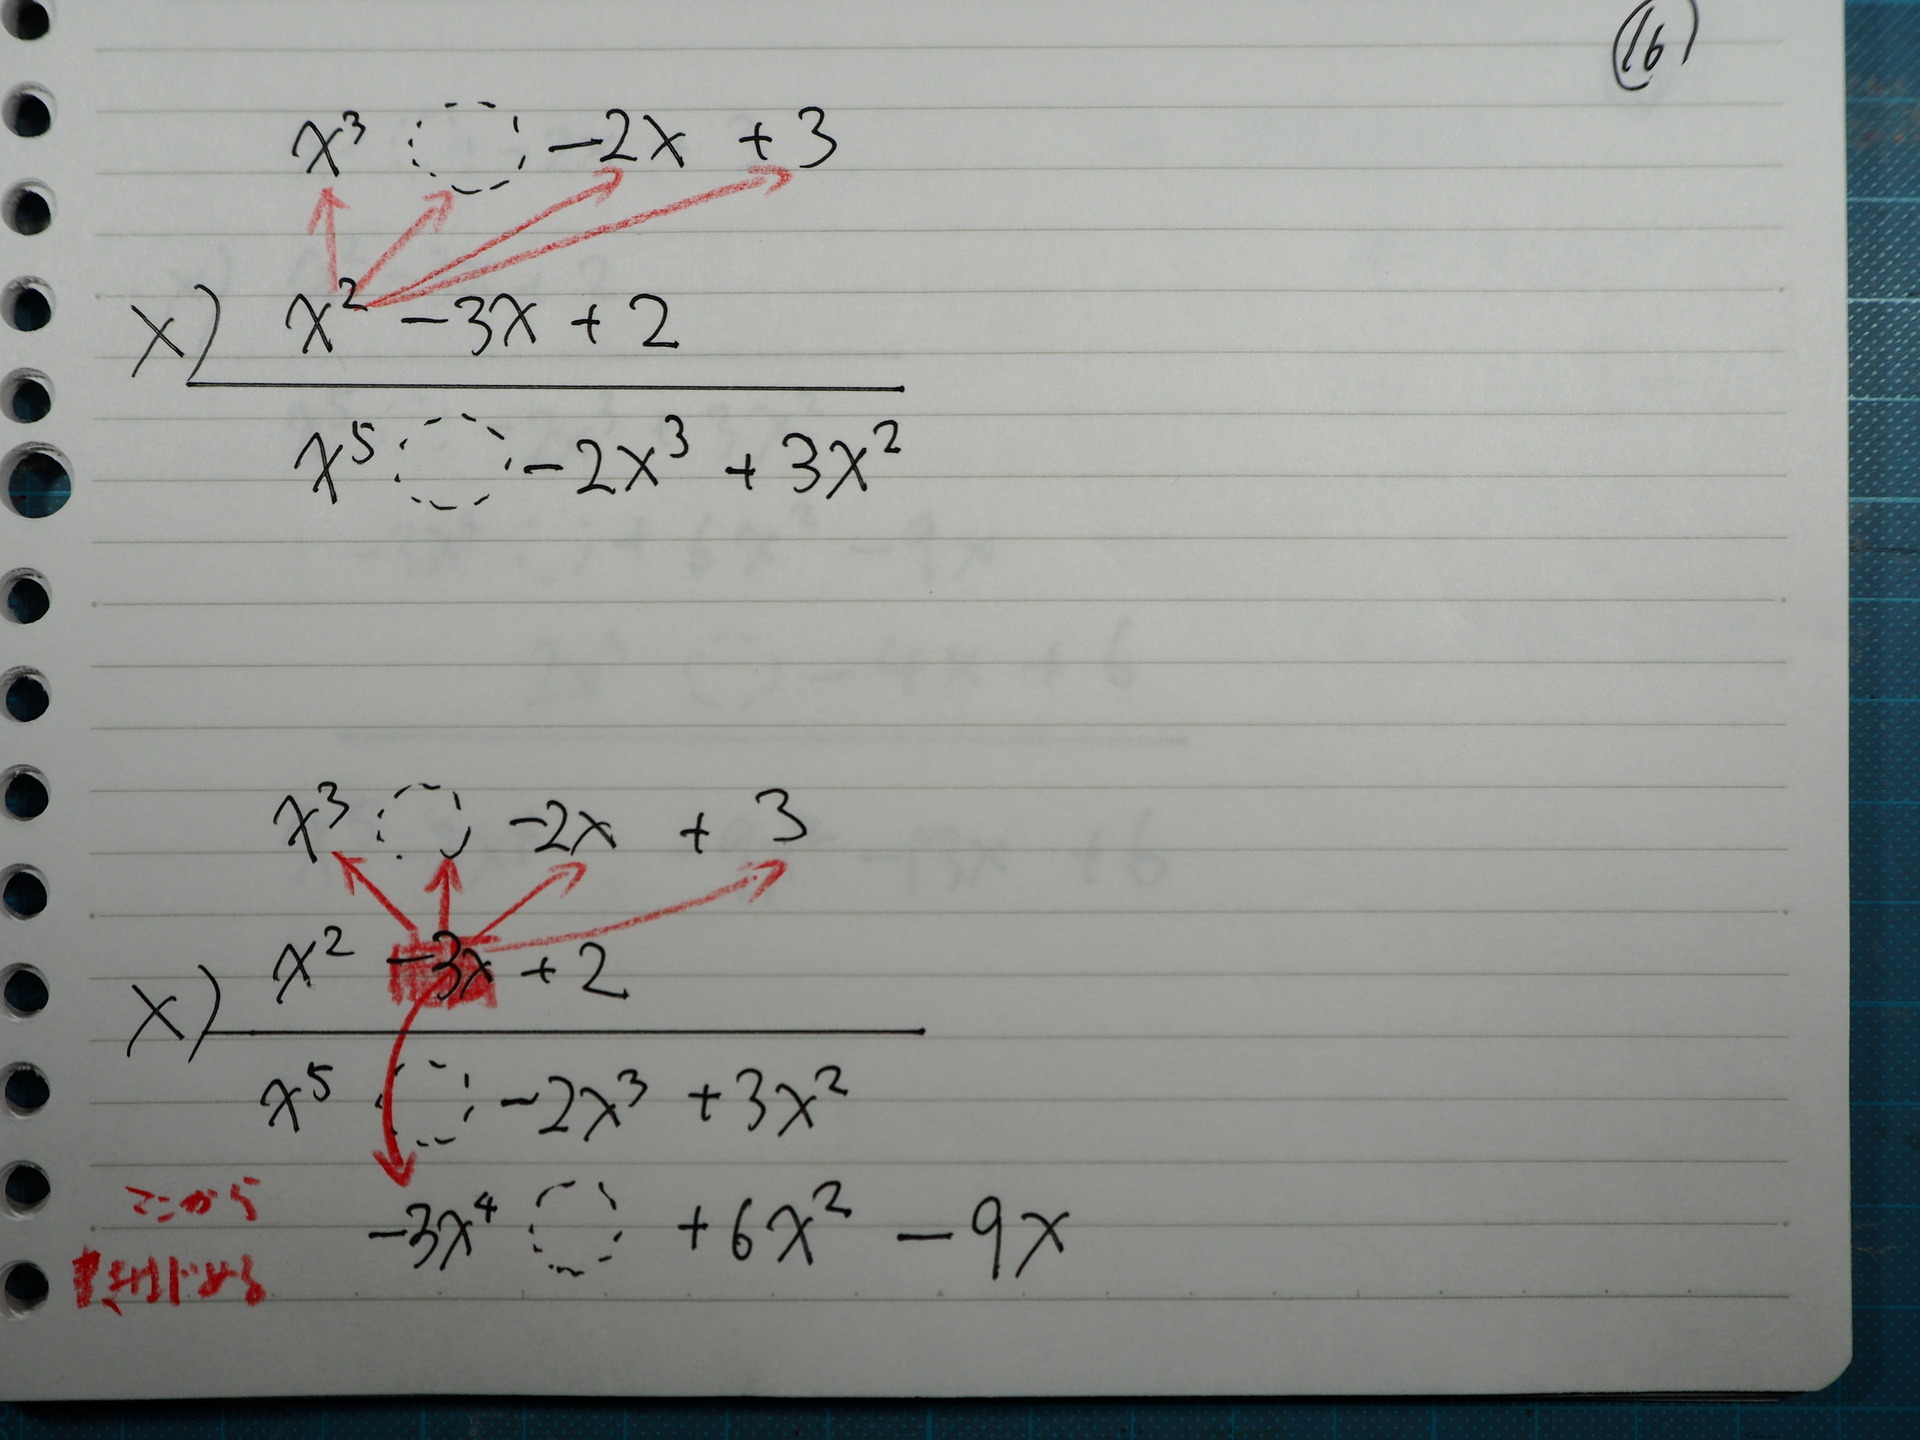 (16)
x³ -2x +3
x) x² -3x + 2
x⁵ -2x³ + 3x²
x³ -2x + 3
x) x² -3x + 2
x⁵ -2x³ +3x²
ここから
はじめる
-3x⁴ +6x² -9x